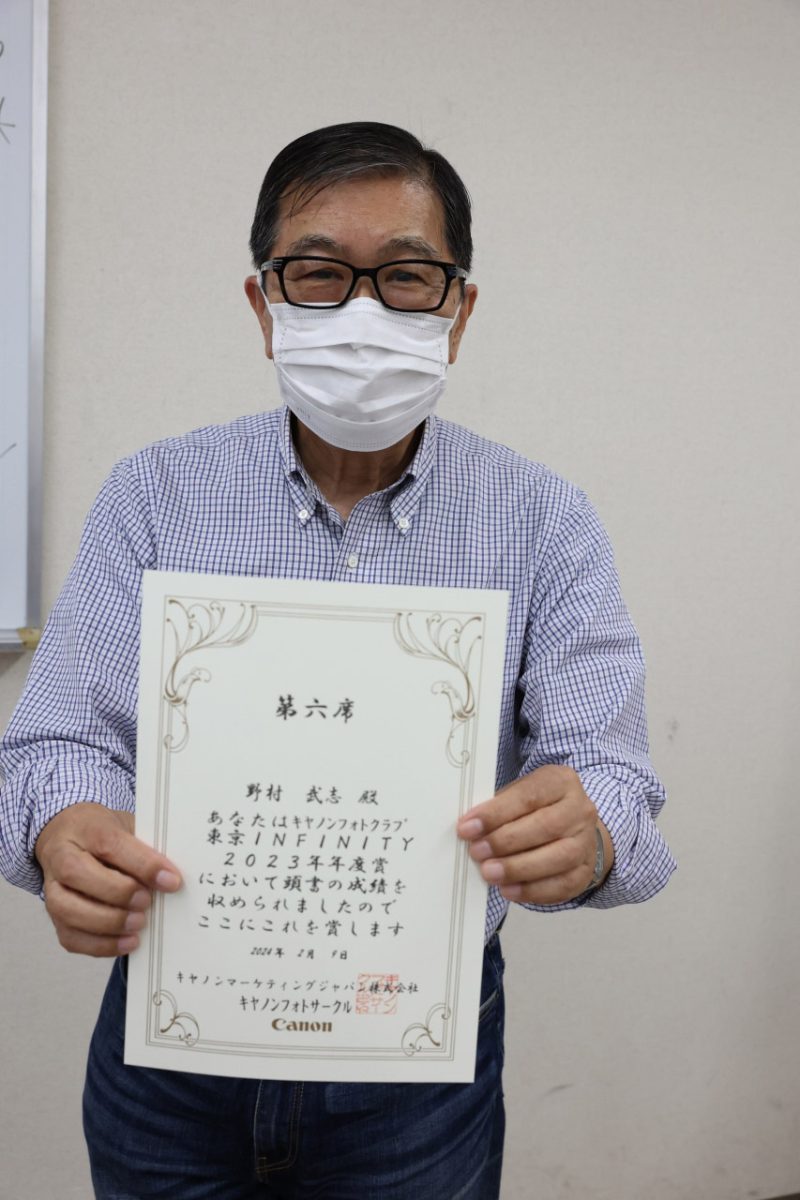 第六席
野村 武志 殿
あなたはキヤノンフォトクラブ
東京INFINITY
2023年年度賞
において頭書の成績を
収められましたので
ここにこれを賞します
2024年 2月 9日
キヤノンマーケティングジャパン株式会社
キヤノンフォトサークル
Canon